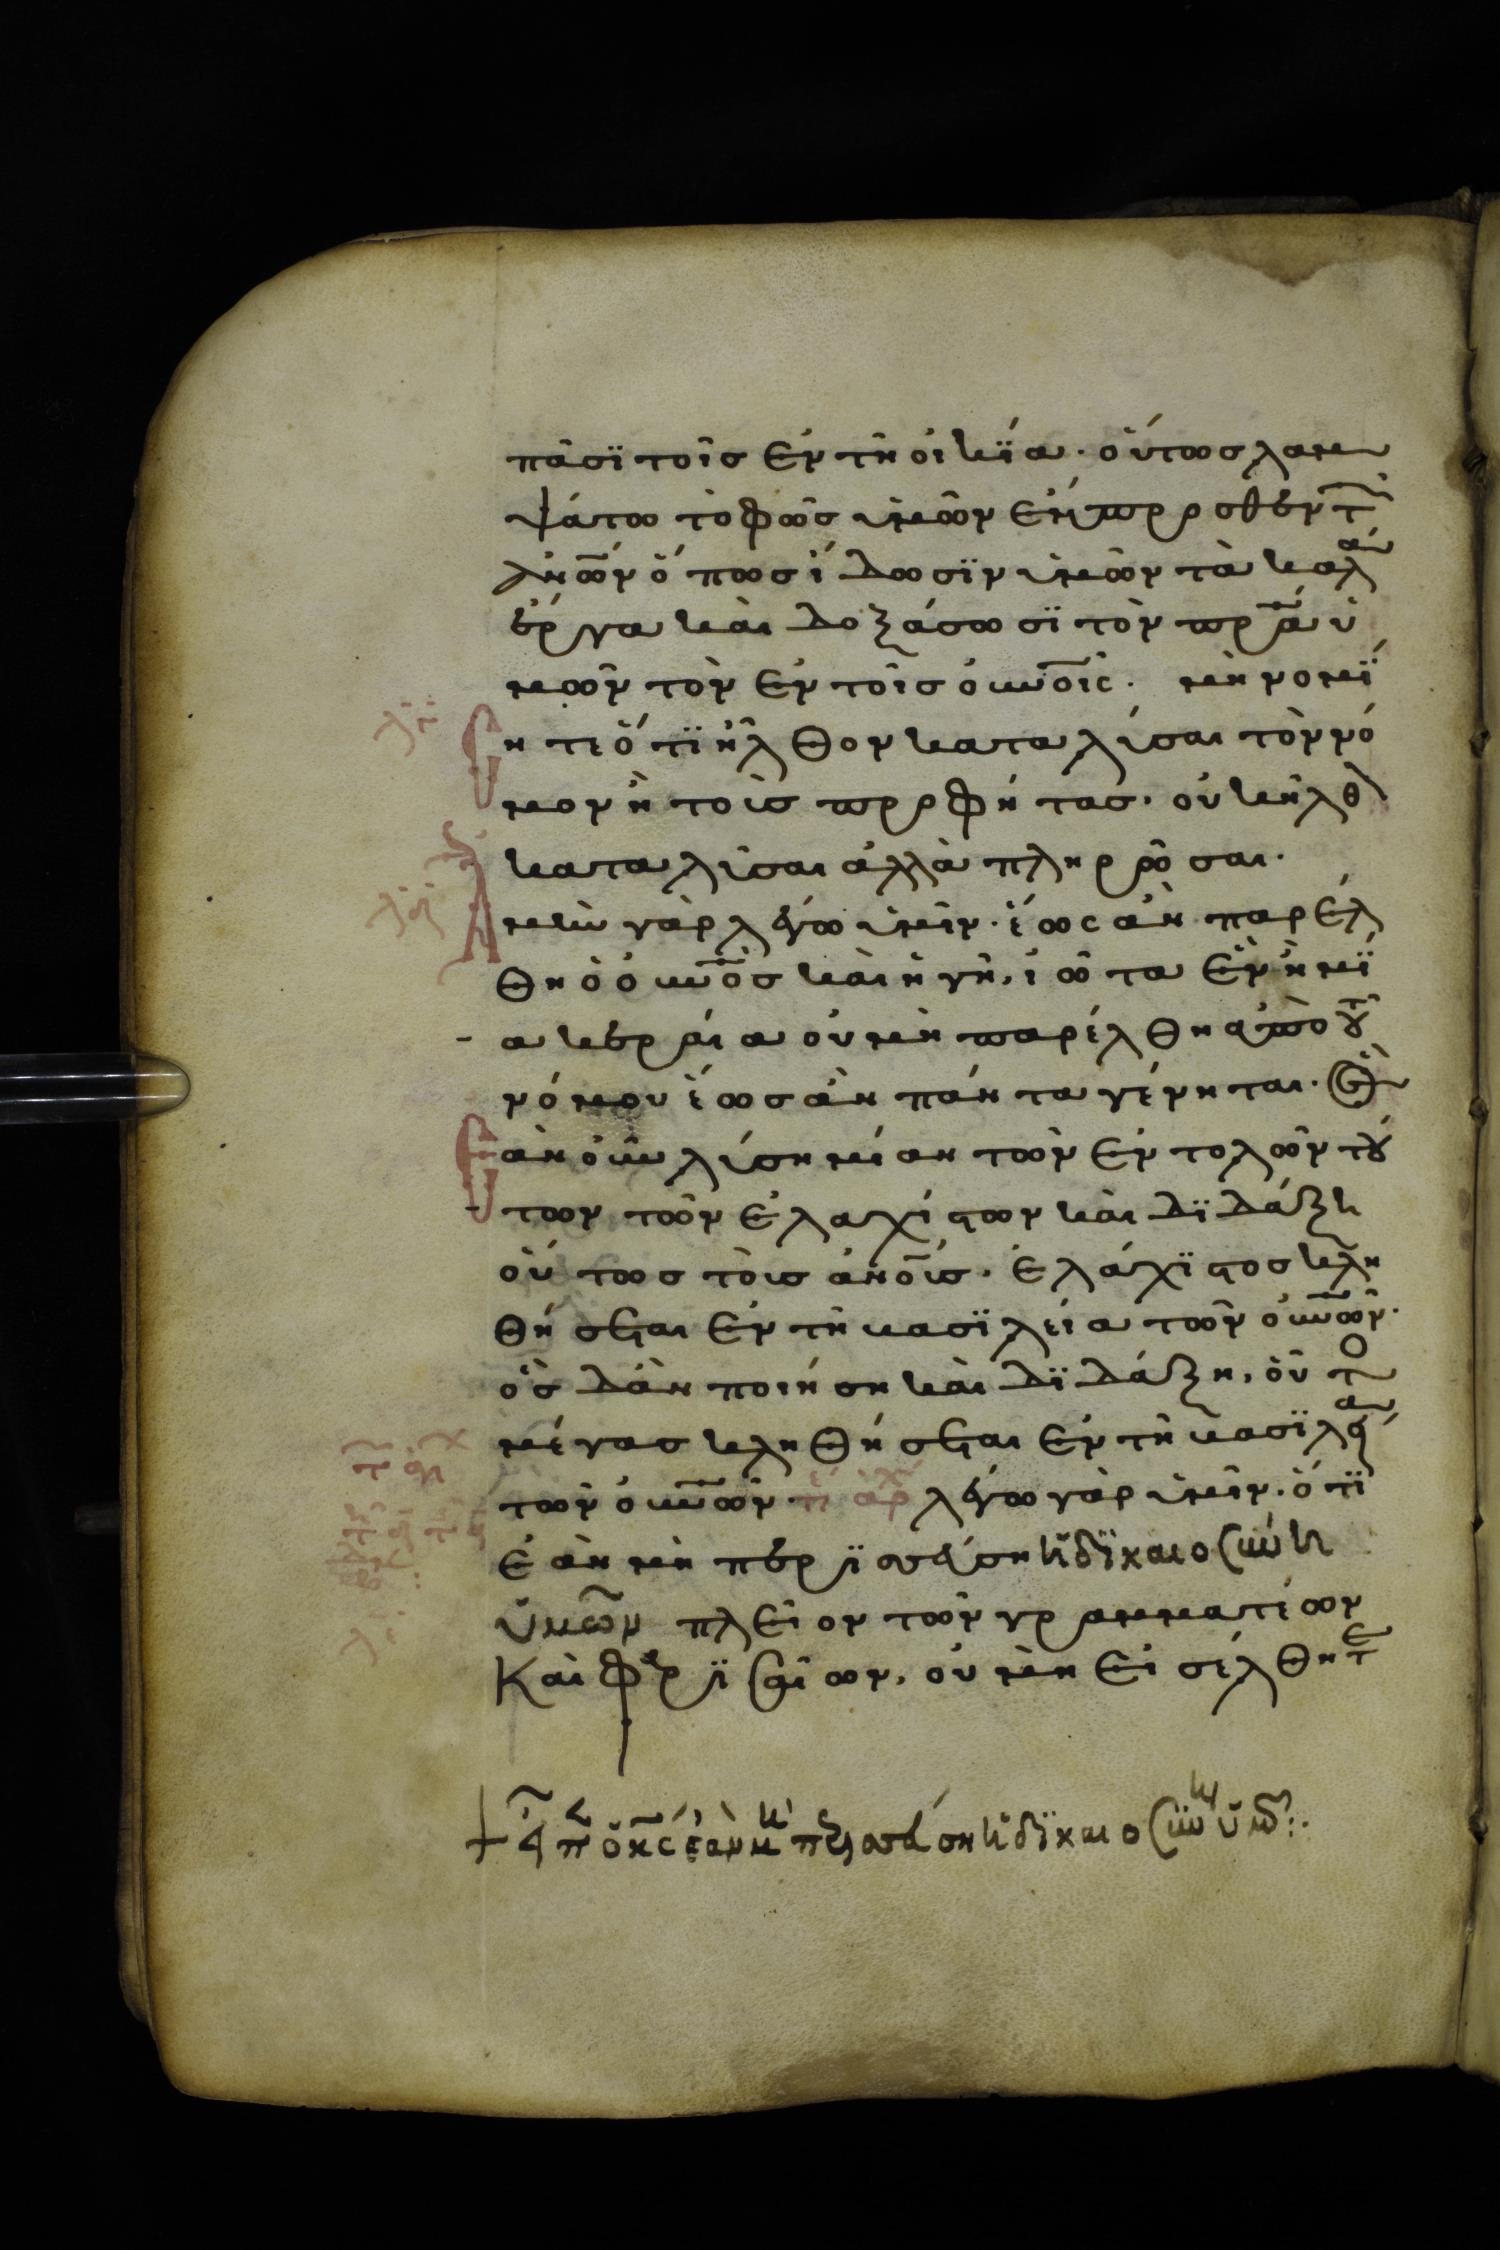 πᾶσϊ τοῖσ ἐν τῆ οἰκΐα· οὕτωσ λαμ
ψάτω τὸ φῶσ ὑμῶν ἔμπροσθεν τ
ἀνων ὅπωσ ἴδωσϊν ὑμῶν τὰ καλὰ
ἔργα καὶ δοξάσωσϊ τὸν πρα ὑ
μῶν τὸν ἐν τοῖσ οὐνοις· μὴ νομΐ
ητε ὅτϊ ἦλθον καταλύσαι τὸν νό
μον ἢ τοὺσ προφήτασ· οὐκ ἦλθ
καταλύσαι ἀλλὰ πληρῶσαι·
μὴν γὰρ λέγω ὑμῖν· ἕως ἂν παρέλ
θη ὁ οὐνὸσ καὶ ἡ γῆ, ἰῶτα ἓν ἢ μΐ
α κεραία οὐ μὴ παρέλθη ἀπὸ τοῦ
νόμου ἕωσ ἂν πάντα γένηται· ὃσ
ἐὰν οὖν λύση μίαν τῶν ἐντολῶν τού
των τῶν ἐλαχίστων καὶ δϊδάξει
οὕτωσ τοὺσ ἀνοισ· ἐλάχϊστοσ κλη
θήσεται ἐν τῆ βασϊλεία τῶν οὐνων·
ὃσ δἂν ποιήση καὶ δϊδάξη, οὗτο
μέγασ κληθήσεται ἐν τῆ βασϊλεία
τῶν οὐνων τε αρχ λέγω γὰρ ὑμῖν· ὅτϊ
ἐὰν μὴ περϊσσεύση ἡ δϊκαιοσύνη
ὑμῶν πλεῖον τῶν γραμματέων
Καὶ φαρϊσαίων, οὐ μὴ εἰσέλθητε
+ εἶπ ὁ κς ἐὰν μὴ περισσεύση ἡ δϊκαιοσύνη ὑμῶν:·